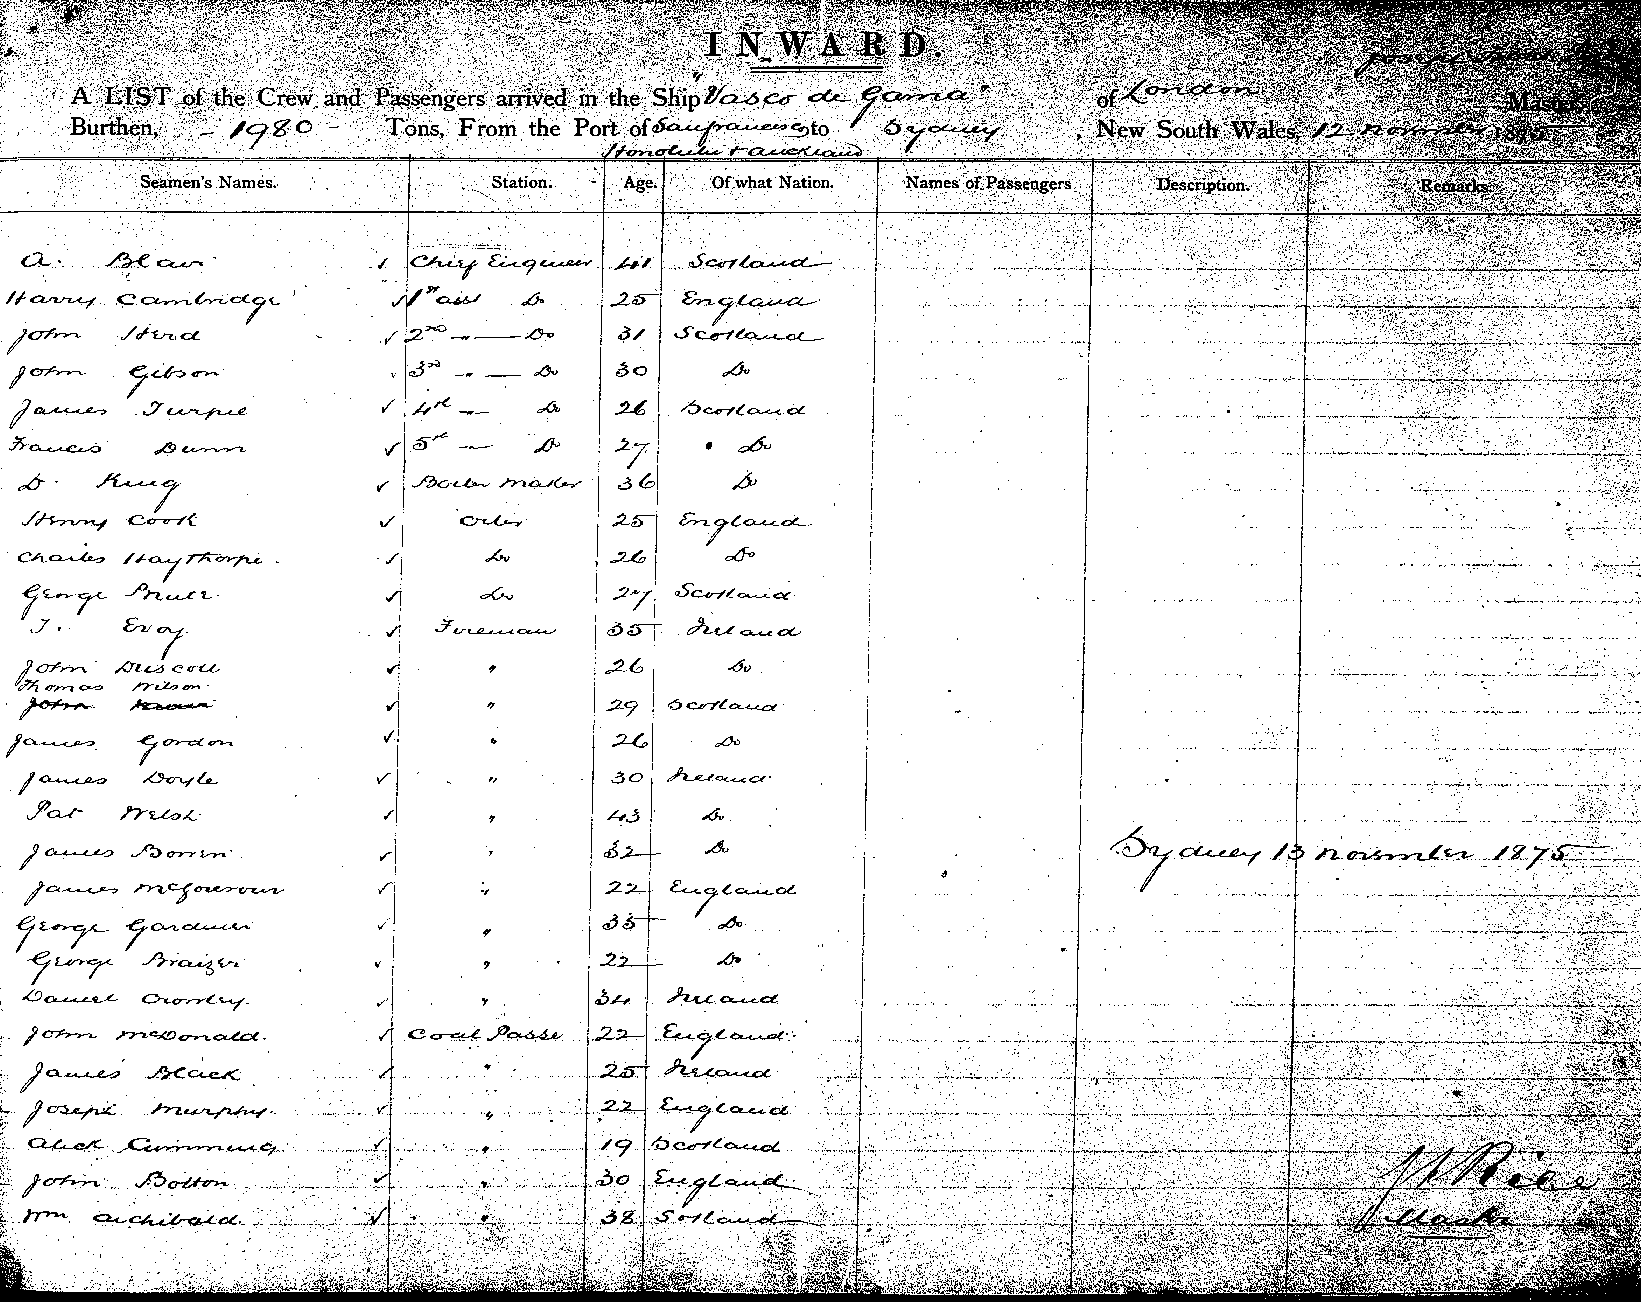 INWARD.
A LIST of the Crew and Passengers arrived in the Ship "Vasco de Gama" of London Master
Burthen, - 1980 - Tons, From the Port of Sanfrancisco to Sydney, New South Wales, 12 November 1875
Honolulu & Auckland
Seamen's Names. Station. Age. Of what Nation. Names of Passengers Description. Remarks
A. Blair ✓ Chief Engineer 41 Scotland
Harry Cambridge ✓ 1st asst Do 25 England
John Herd ✓ 2nd " — Do 31 Scotland
John Gibson 3rd " — Do 30 Do
James Turpie ✓ 4th — Do 26 Scotland
Francis Dunn ✓ 5th — Do 27 Do
D. King ✓ Boiler Maker 36 Do
Henry Cook ✓ Oiler 25 England
Charles Haythorpe ✓ Do 26 Do
George ✓ Do 27 Scotland
T. Evoy ✓ Fireman 35 Ireland
John Driscoll ✓ " 26 Do
Thomas Wilson
John ✓ " 29 Scotland
James Gordon ✓ " 26 Do
James Doyle ✓ " 30 Ireland
Pat Welsh ✓ " 43 Do
James ✓ " 32 Do
Sydney 13 November 1875
James McGouroun ✓ " 22 England
George Gardiner ✓ " 35 Do
George Braizer ✓ " 22 Do
Daniel Crowley ✓ " 34 Ireland
John McDonald ✓ Coal Passe 22 England
James Black ✓ " 25 Ireland
Joseph Murphy ✓ " 22 England
Alick Cumming ✓ " 19 Scotland
John Bolton ✓ " 30 England
Wm Archibald ✓ " 38 Sotland
Master